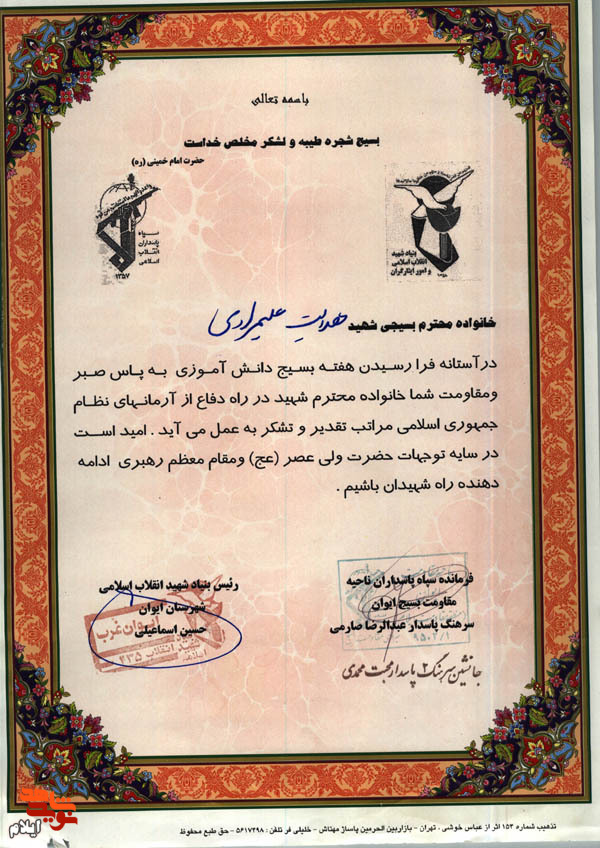 باسمه تعالی
بسیج شجره طیبه و لشکر مخلص خداست
حضرت امام خمینی (ره)
سپاه
پاسداران
انقلاب
اسلامی
۱۳۵۷
بنیاد شهید
انقلاب اسلامی
و امور ایثارگران
خانواده محترم بسیجی شهید هدایت علیمرادی
درآستانه فرا رسیدن هفته بسیج دانش آموزی به پاس صبر
ومقاومت شما خانواده محترم شهید در راه دفاع از آرمانهای نظام
جمهوری اسلامی مراتب تقدیر و تشکر به عمل می آید . امید است
در سایه توجهات حضرت ولی عصر (عج) ومقام معظم رهبری ادامه
دهنده راه شهیدان باشیم .
فرمانده سپاه پاسداران ناحیه
مقاومت بسیج ایوان
سرهنگ پاسدار عبدالرضا صارمی
جانشین سرهنگ ۲ پاسدار محبت محمدی
رئیس بنیاد شهید انقلاب اسلامی
شهرستان ایوان
حسین اسماعیلی
ایوان غرب
تذهیب شماره ۱۵۳ اثر از عباس خوشی . تهران - بازاربین الحرمین پاساژ مهتاش - خلیلی فر تلفن : ۵۶۱۷۴۹۸ - حق طبع محفوظ
نوید
ایلام